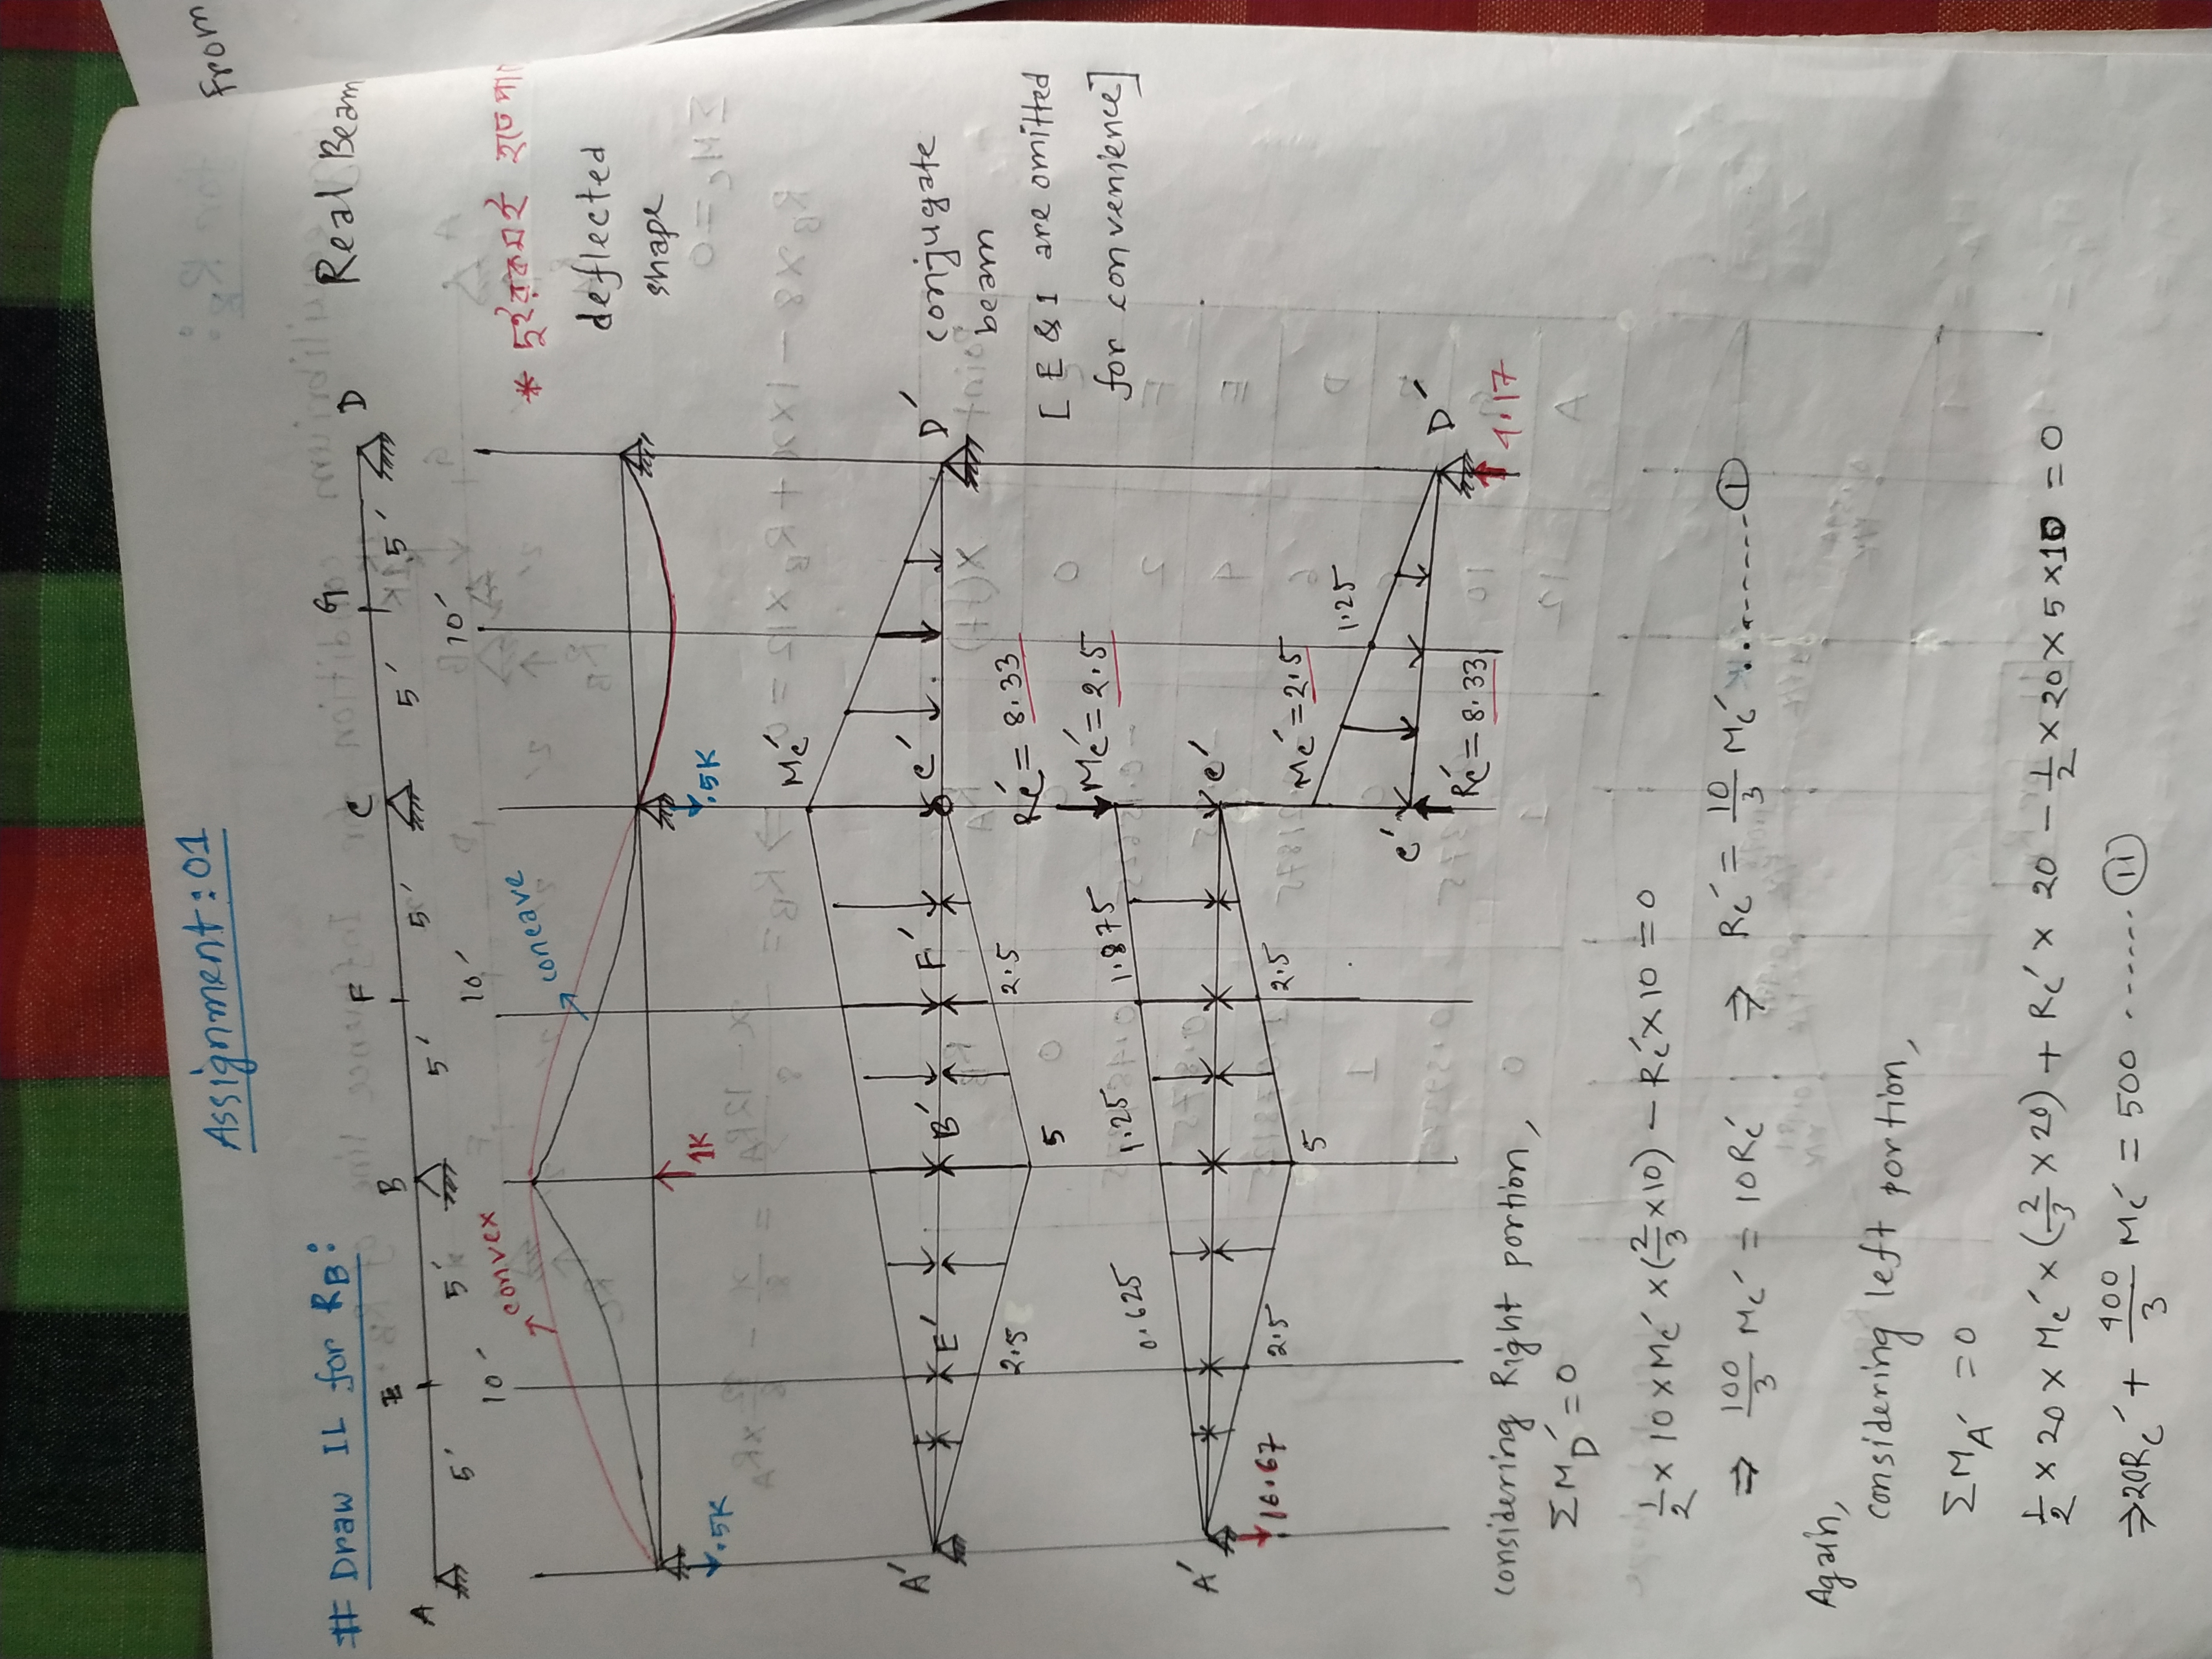 From
Assignment:01
# Draw IL for RB:
A E B F C G D Real Beam
5' 5' 5' 5' 5' 5'
10' 10' 10'
convex
concave
* দুইরকমই হতে
deflected
shape
.5K 1K .5K
Mc'
A' E' B' F' C' D' conjugate
beam
2.5 5 2.5
[E & I are omitted
for convenience]
Rc' = 8.33
Mc' = 2.5
0.625 1.25 1.875
A' C'
2.5 5 2.5
16.67
Mc' = 2.5 1.25
C' D'
Rc' = 8.33 4.17
considering Right portion,
ΣMD' = 0
1/2 × 10 × Mc' × (2/3 × 10) − Rc' × 10 = 0
⇒ 100/3 Mc' = 10Rc' ⇒ Rc' = 10/3 Mc' ........ (i)
Again,
considering left portion,
ΣMA' = 0
1/2 × 20 × Mc' × (2/3 × 20) + Rc' × 20 − 1/2 × 20 × 5 × 10 = 0
⇒ 20Rc' + 400/3 Mc' = 500 ....... (ii)